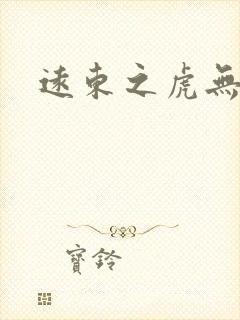 遠東之虎無
寶鈴